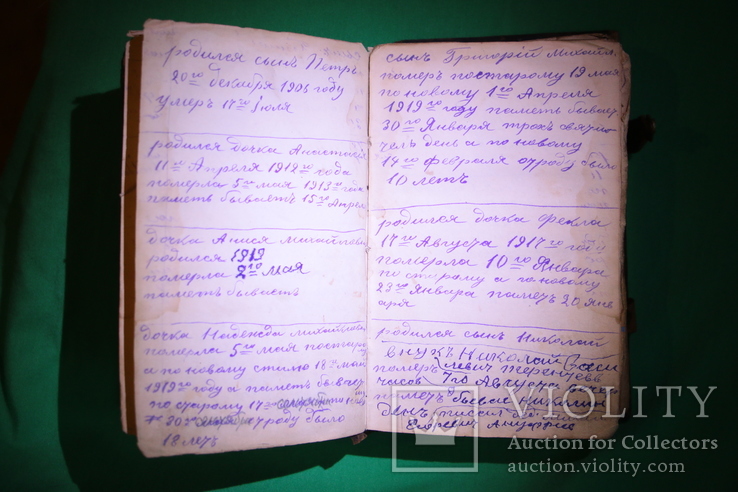 родился сынъ Петръ
20го декабря 1905 году
умеръ 17го июля
родилась дочка Анастасия
11го Апреля 1912го года
померла 5го мая 1913го года
паметь бываетъ 15го Апреля
дочка Анися михайловна
родился 1919
померла 2го мая
паметь бываетъ
дочка Надежда михайловна
померла 5го мая постарому
а по новому стилю 18го мая
1919го году а паметь бывает
по старому 17го
30го отроду было
18 летъ
сынъ Григорiй михайл
померъ постарому 19 мая
по новому 1го Апреля
1919го году паметь бывает
30го Января трохъ святи
тель день а по новому
14го февраля отроду было
10 летъ
родился дочка Фекла
17го Августа 1917го году
померла 10го Января
по старому а по новому
23го Января паметь 20 Янв
аря
родился сынъ Николай
внукъ Николай
померъ
часов 7го Августа
паметь бывае
день писал